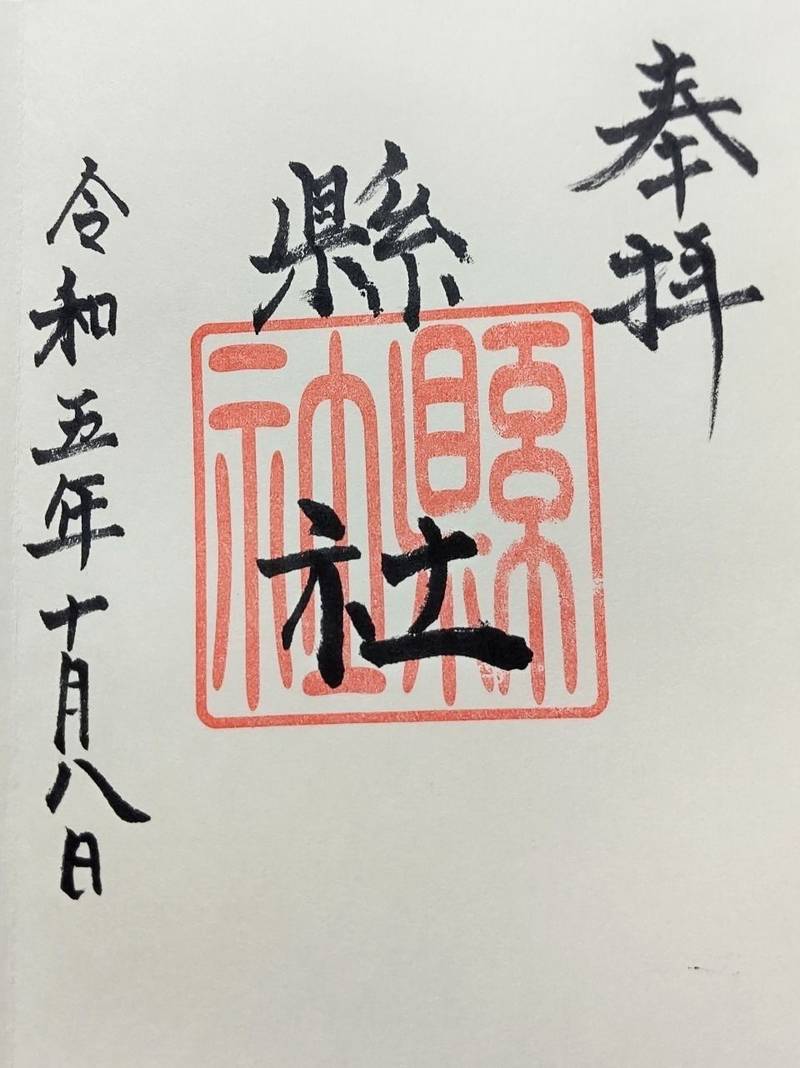 奉拝
縣社
縣社
令和五年十月八日